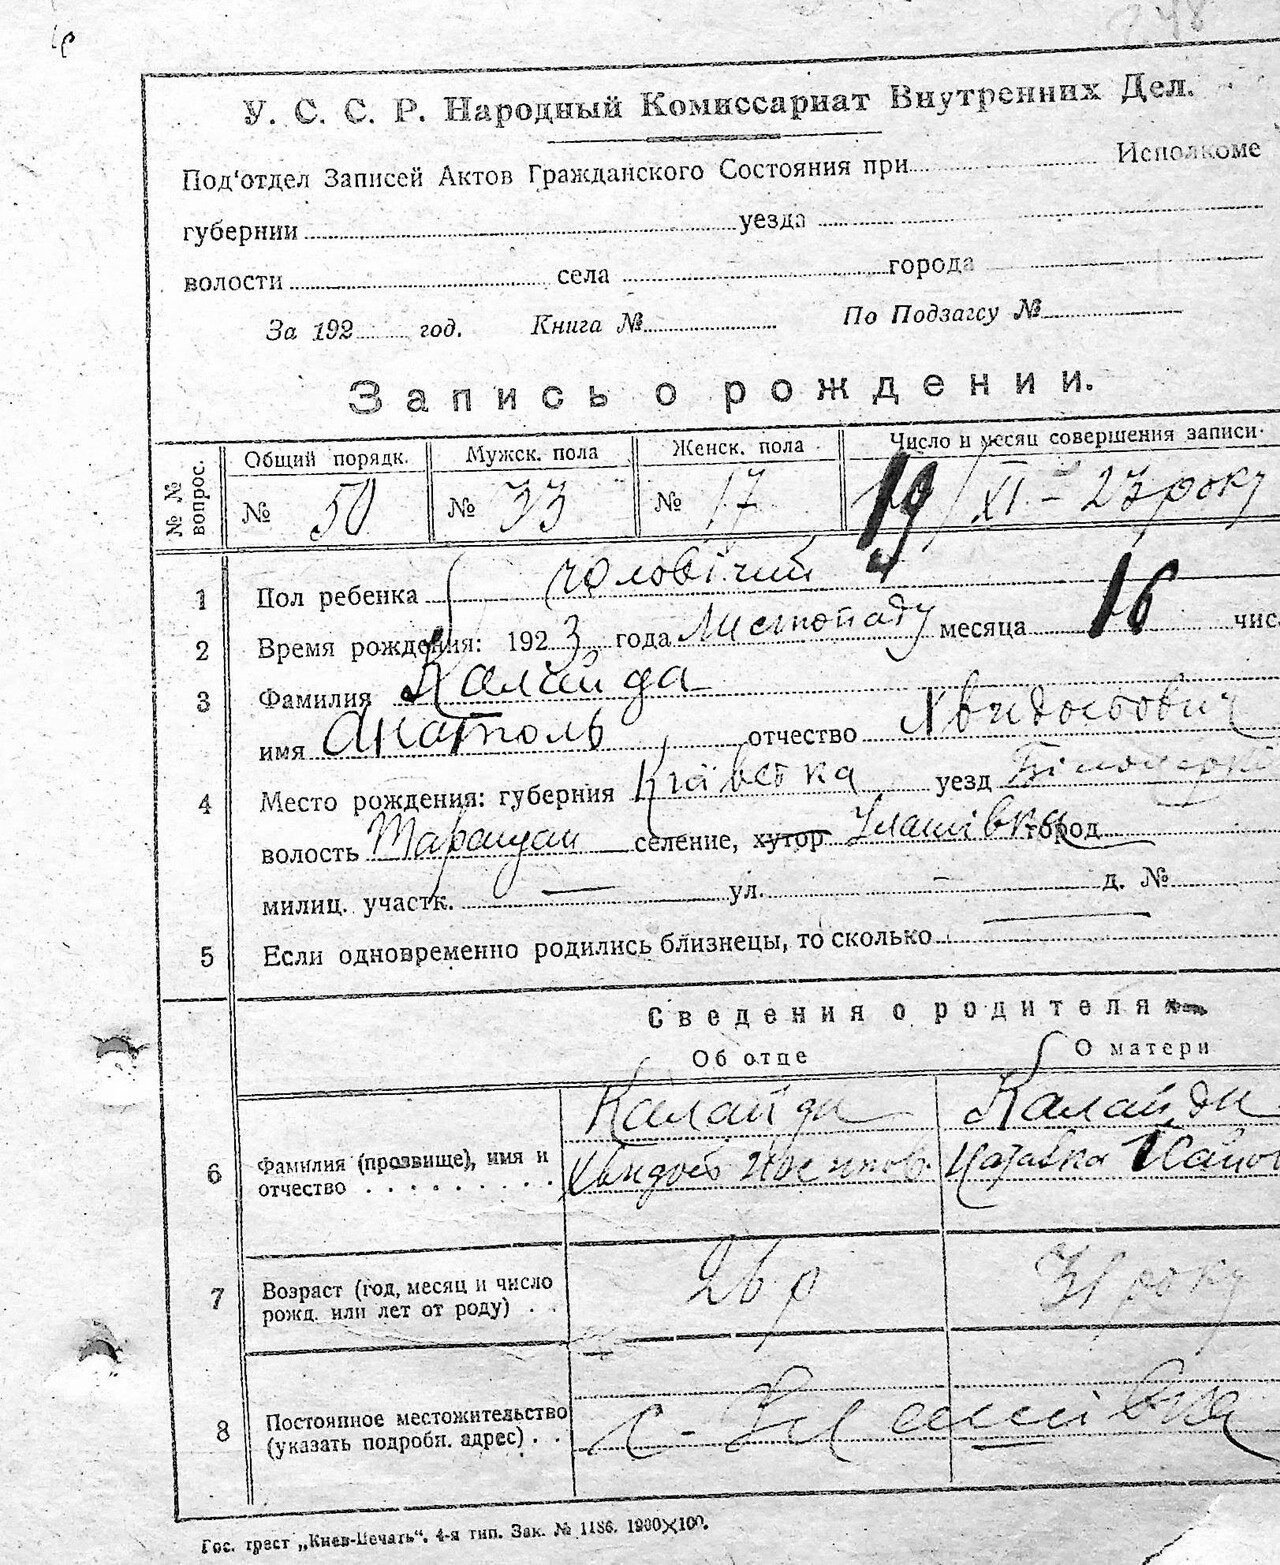 248
У. С. С. Р. Народный Комиссариат Внутренних Дел.
Под'отдел Записей Актов Гражданского Состояния при Исполкоме
губернии уезда
волости села города
За 192 год. Книга № По Подзагсу №
Запись о рождении.
№ № вопрос. Общий порядк. Мужск. пола Женск. пола Число и месяц совершения записи
№ 50 № 33 № 17 19/XI – 23 року
1 Пол ребенка чоловічий
2 Время рождения: 1923 года Листопаду месяца 16 чис
3 Фамилия Калайда
имя Анатоль отчество Хвидосьович
4 Место рождения: губерния Київська уезд Білоцерків
волость Таращан селение, хутор город
милиц. участк. — ул. - д. №
5 Если одновременно родились близнецы, то сколько —
Сведения о родителях
Об отце О матери
6 Фамилия (прозвище), имя и отчество Калайда Калайда
Хвидось
7 Возраст (год, месяц и число рожд. или лет от роду) 26 р 31 року
8 Постоянное местожительство (указать подробн. адрес) с.
Гос. трест „Киев-Печать“. 4-я тип. Зак. № 1186. 1900×100.